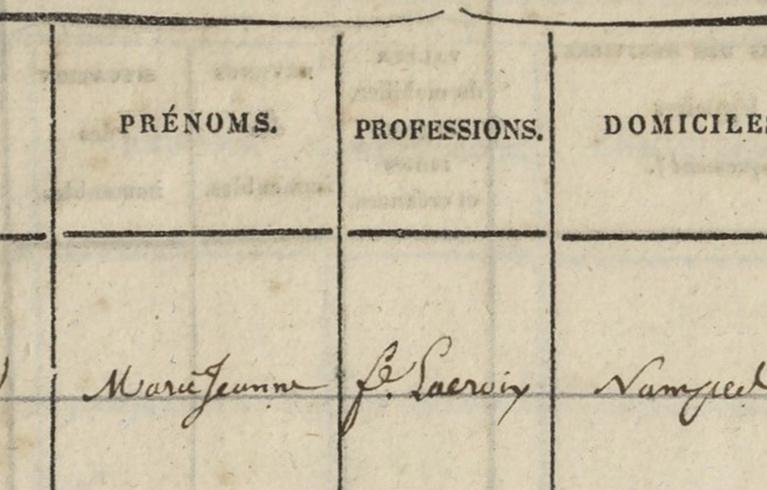 PRÉNOMS. PROFESSIONS. DOMICILES
Marie Jeanne fe. Lacroix